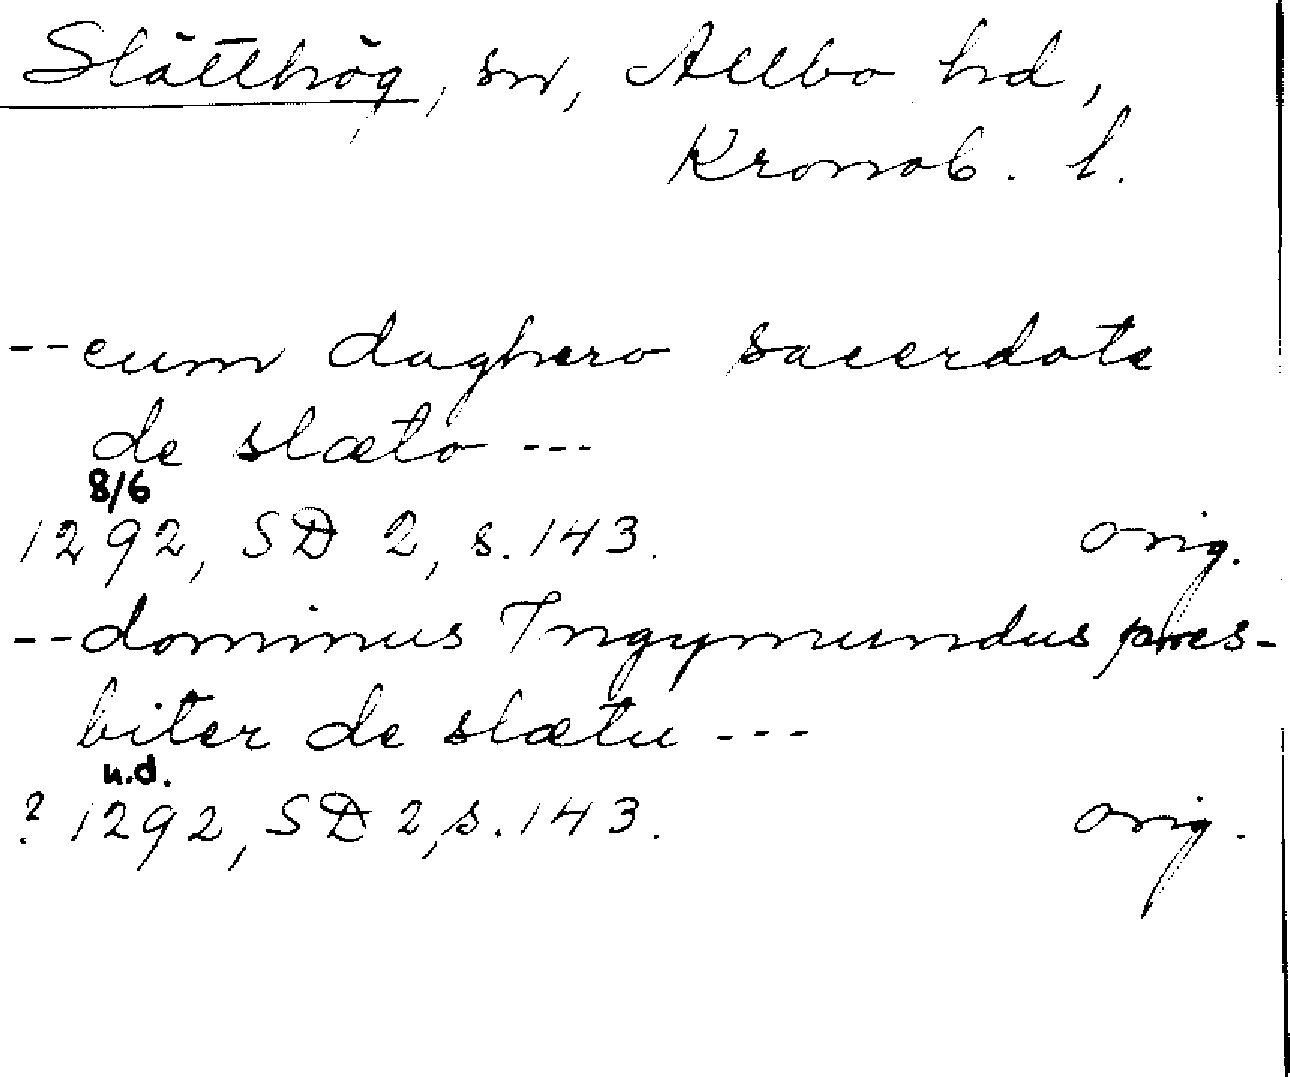 Slätthög, sn, Allbo hd,
Kronob. l.
--cum daghero sacerdote
de slæto ---
8/6
1292, SD 2, s. 143. orig.
--dominus Ingymundus pres-
biter de slætu ---
u.d.
? 1292, SD 2, s. 143. orig.